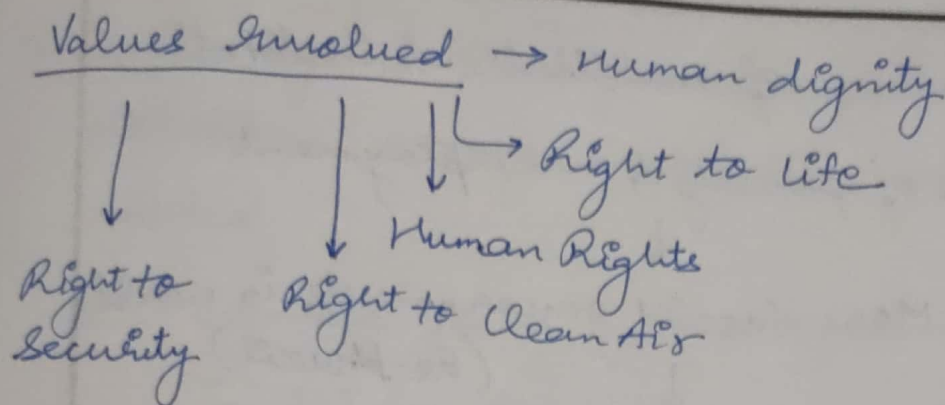 Values Involved → Human dignity
→ Right to life
Human Rights
Right to
Security
Right to Clean Air